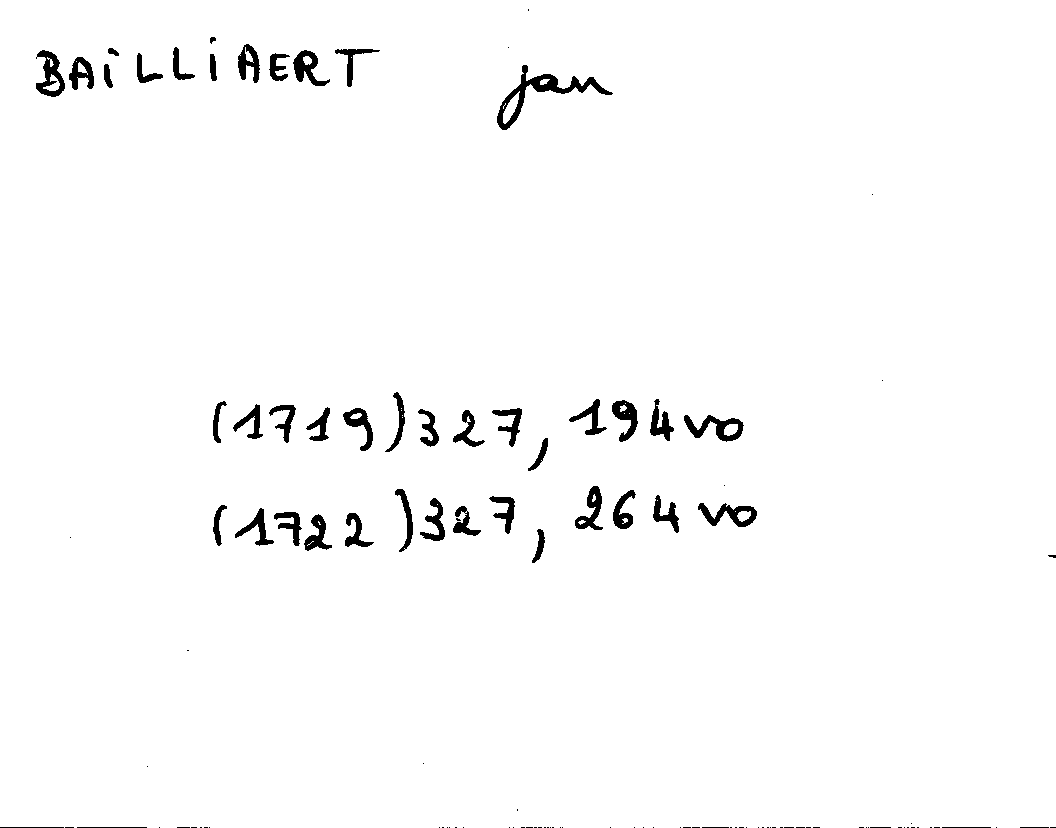 BAiLLiAERT jan
(1719)327, 194vo
(1722)327, 264vo